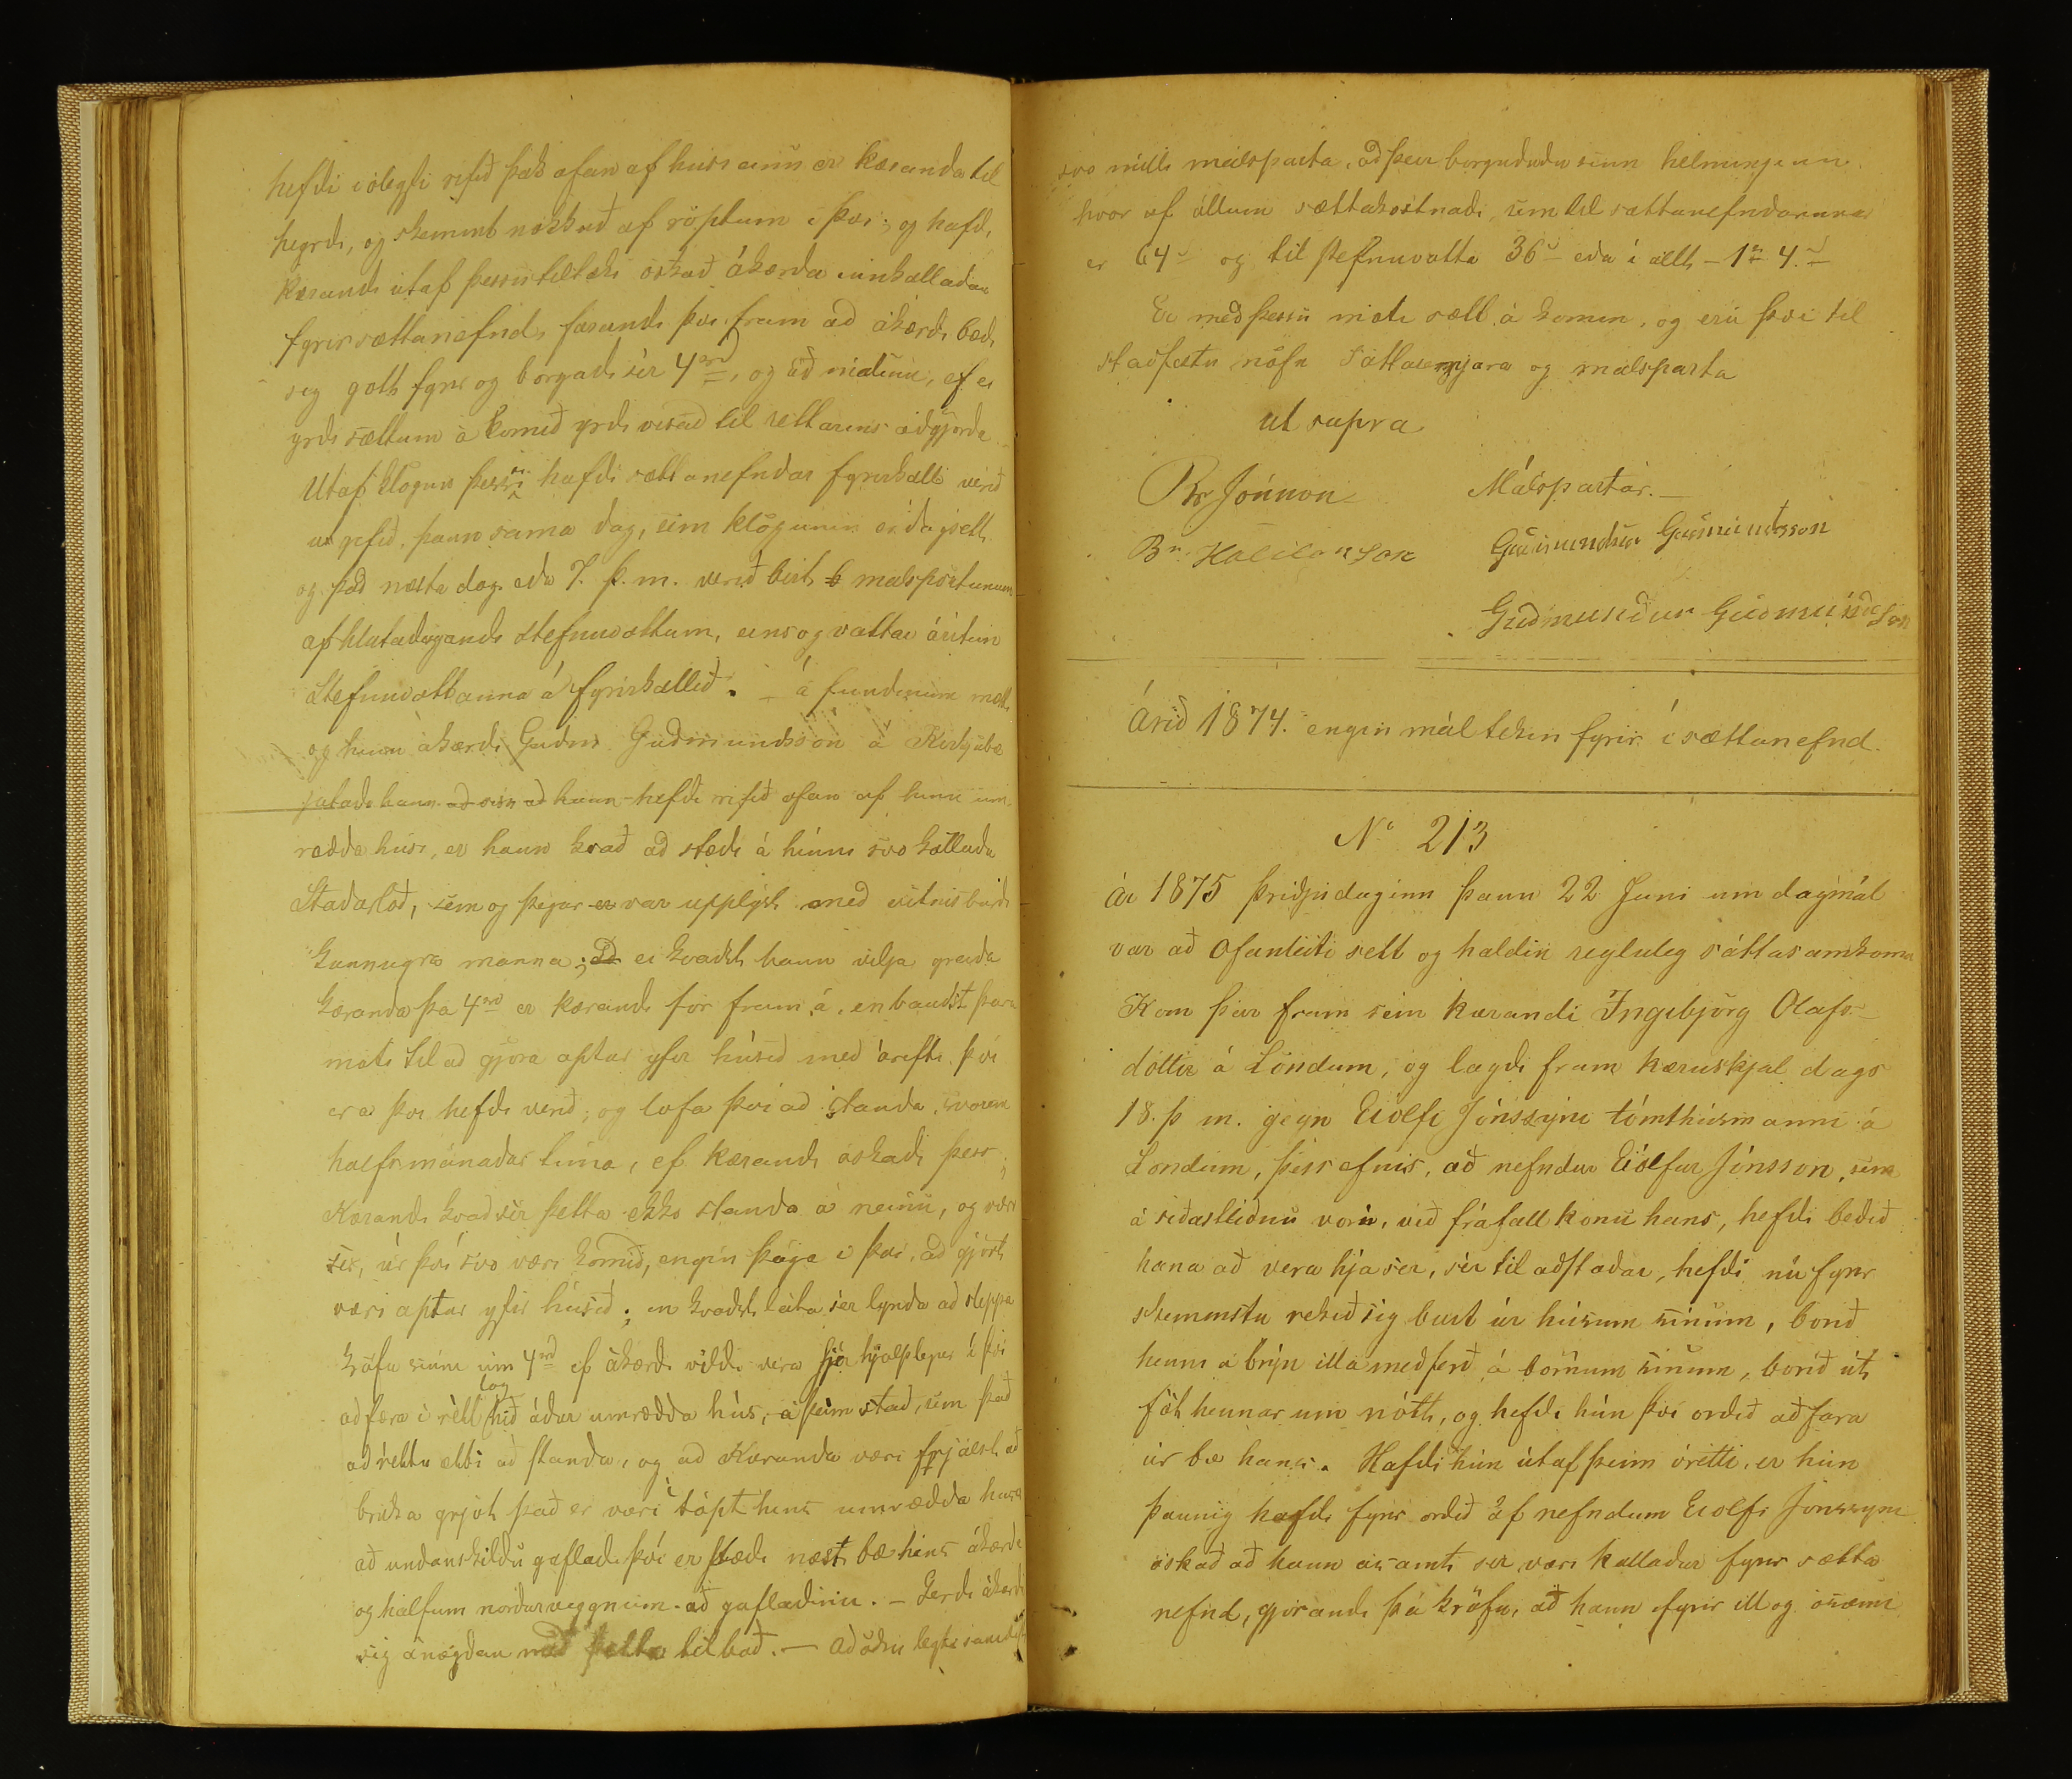 hefdi i ólegfi rifið þak ofan af húsi einu er kæranda til
heyrdi, og skemmt nokkuð af röptum i því; og hafdi
kærandi útaf þessu tiltæki óskað ákærda innkalladan
fyrir sættanefnd, farandi því fram að ákærdi bædi
sig gott fyrir og borgadi sér 4rd, og að málinu, ef ei
yrdi sættum á komið yrdi vísað til réttarins aðgjörda
Utaf klögun þessari hafdi sættanefndar fyrirkall verið
útgefið, þann sama dag, sem klögunin er dagsett
og það næsta dag eda 7. þ. m. verið birt málspörtunum
af hlutadeigandi stefnuvottum, eins og vottar áritun
Stefnuvottanna á fyrirkallið. – á fundinum mætti
og hinn ákærdi Guðm Guðmundsson á Kirkjubæ
játadi hann að hann hefdi rifið ofan af hinu um
rædda húsi, er hann kvað að stædi á hinni svo kölludu
Stadarlóð, sem og þegar er var upplýst með vitnisburdi
kunnugra manna; ei kvadst hann vilja greida
kæranda þá 4rd er kærandi fór fram á, en baudst þar á
móti til að gjöra aptur yfir húsid med árefti því
er á því hefdi verið; og lofa því að standa, svo sem
halfsmánadar tíma, ef kærandi óskadi þess;
Kærandi kvad sér þetta ekki standa á neinu, og væri
sér, úr því svo væri komið, engin þægð i því, að gjört
væri aptur yfir húsið; en kvadst láta sér lynda að sleppa
kröfu sinni um 4rd ef ákærdi vildi vera sér hjálplegur í því
að færa i rétt lag hið áður umrædda hús, á þeim stað, sem það
að réttu ætti að standa, og að Kæranda væri frjálst að
brúka grjót það er væri í tópt hins umrædda húss
að undanskildu gafladi því er stædi næst bæ hins ákærda
og hálfum nordurveggnum að gafladinu. – Gerdi ákærdi
sig ánægdan með þetta tilboð. – Að öðru leyti samdist
svo milli málsparta, að þeir borgududu sinn helminginn
hvor af öllum sættakostnadi, sem til sættanefndarinnar
er 64 s og til Stefnuvotta 36 s eda í allt – 1rd 4 s
Er með þessu móti sætt á komin, og eru því til
stadfestu nöfn Sáttasemjara og málsparta
ut supra
Br Jónnon Málspartar. –
Guðmundur Guðmundsson
Guðmundur Guðmundsson
Árið 1874. engin mál tekin fyrir í sættanefnd.
No 213
Ár 1875 þriðjudaginn þann 22 Juni um dagmál
var að Ofanleiti sett og haldin regluleg sáttasamkoma
Kom þar fram sem kærandi Ingibjörg Olafs-
dóttir á Löndum, og lagdi fram kæruskjal dags
18. þ m. gegn Eiolfi Jónssyni tómthúsmanni á
Londum, þess efnis, að nefndur Eiolfur Jónsson, sem
á síðastliðnu vori, við fráfall konu hans, hefdi bedið
hana að vera hjá sér, sér til aðstadar, hefdi nú fyrir
skemmstu rekið sig burt úr húsum sínum, borið
henni á brýn illa medferð á börnum sínum, borið út
föt hennar um nótt, og hefdi hún því ordið að fara
úr bæ hans. Hafdi hún útaf þeim órétti, er hún
þannig hafdi fyrir ordið af nefndum Eiolfi Jónssyni
óskað að hann ásamt sér væri kalladur fyrir sætta
nefnd, gjörandi þá kröfu, að hann fyrir ill og ósæmi